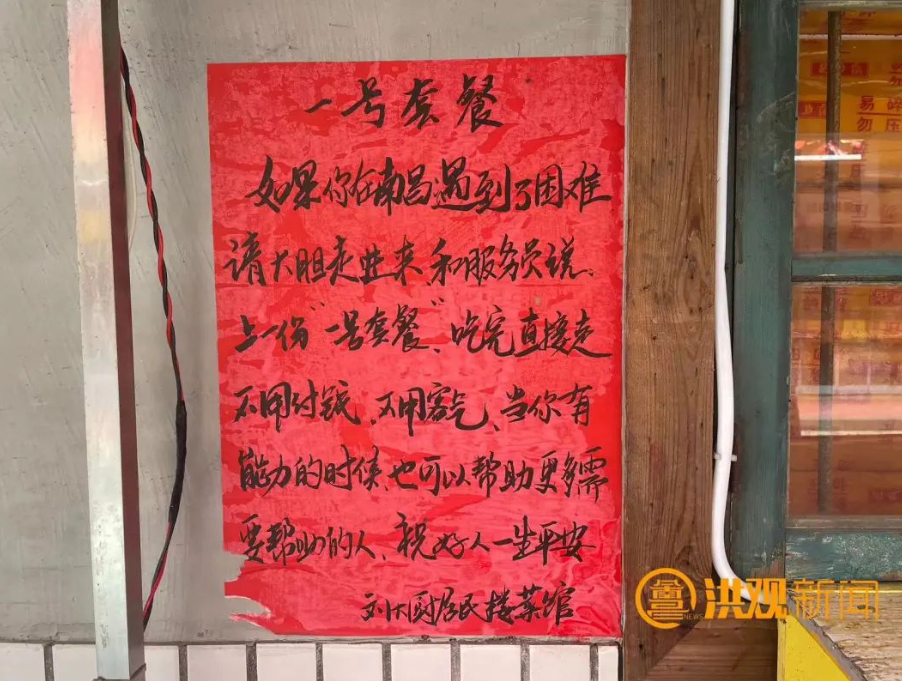 一号套餐
如果你在南昌遇到了困难
请大胆走进来、和服务员说、
上一份“一号套餐”、吃完直接走
不用付钱、不用客气、当你有
能力的时候、也可以帮助更多需
要帮助的人、祝好人一生平安
刘大厨居民楼菜馆
易碎
勿压
洪观新闻
NEWS